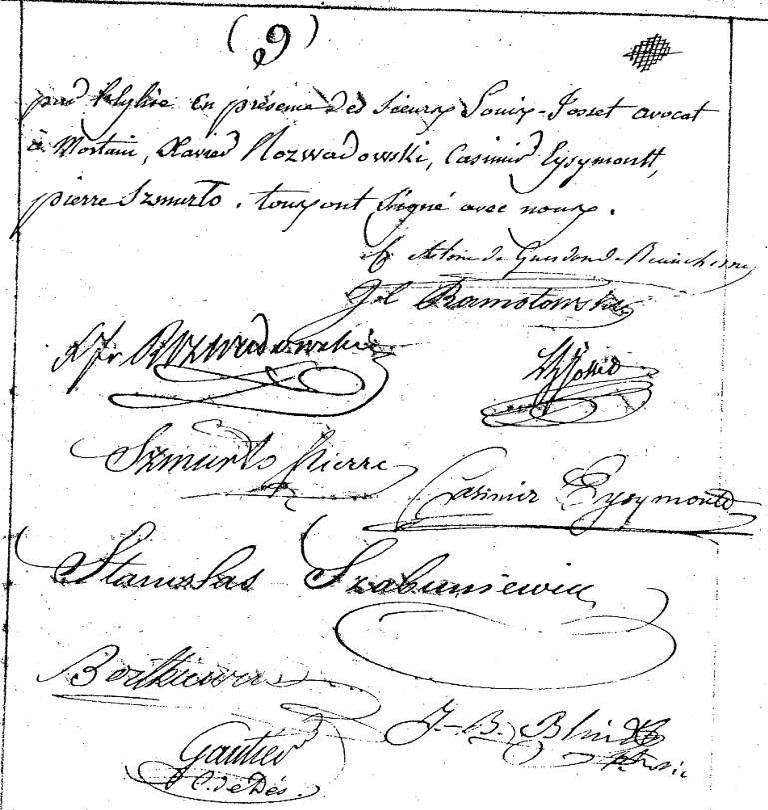 (9)
par l'Eglise en présence des sieurs Louis-Josset avocat
à Mortain, Xavier Rozwadowski, Casimir Eysymontt,
pierre Szmurło. tous ont signé avec nous.
Antoine de Guerdon de
Ramotowski
Rozwadowski
Szmurło Pierre
Casimir Eysymontt
Stanislas Szabuniewicz
Gautier
J.-B. Blin